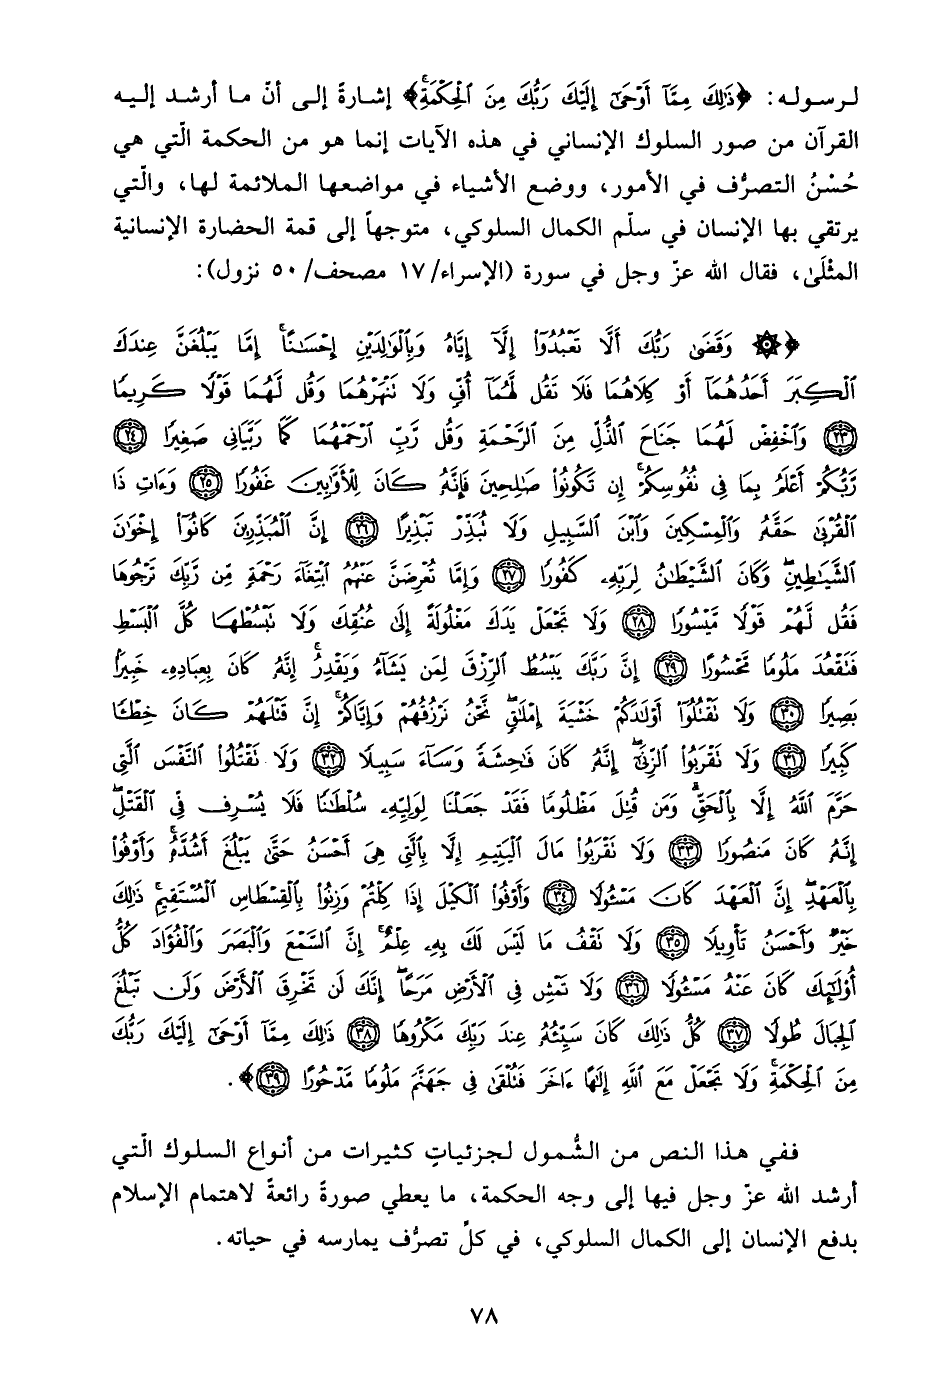 لرسوله: ﴿ذَٰلِكَ مِمَّآ أَوْحَىٰٓ إِلَيْكَ رَبُّكَ مِنَ ٱلْحِكْمَةِۗ﴾ إشارةً إلى أنّ ما أرشد إليه
القرآن من صور السلوك الإنساني في هذه الآيات إنما هو من الحكمة الّتي هي
حُسْنُ التصرُّف في الأمور، ووضع الأشياء في مواضعها الملائمة لها، والّتي
يرتقي بها الإنسان في سلّم الكمال السلوكي، متوجهاً إلى قمة الحضارة الإنسانية
المثْلَىٰ، فقال الله عزّ وجل في سورة (الإسراء/ ١٧ مصحف/ ٥٠ نزول):
﴿۞ وَقَضَىٰ رَبُّكَ أَلَّا تَعْبُدُوٓا۟ إِلَّآ إِيَّاهُ وَبِٱلْوَٰلِدَيْنِ إِحْسَٰنًاۚ إِمَّا يَبْلُغَنَّ عِندَكَ
ٱلْكِبَرَ أَحَدُهُمَآ أَوْ كِلَاهُمَا فَلَا تَقُل لَّهُمَآ أُفٍّ وَلَا نَنْهَرْهُمَا وَقُل لَّهُمَا قَوْلًا كَرِيمًا
﴿٢٣﴾ وَٱخْفِضْ لَهُمَا جَنَاحَ ٱلذُّلِّ مِنَ ٱلرَّحْمَةِ وَقُل رَّبِّ ٱرْحَمْهُمَا كَمَا رَبَّيَانِى صَغِيرًا ﴿٢٤﴾
رَّبُّكُمْ أَعْلَمُ بِمَا فِى نُفُوسِكُمْۚ إِن تَكُونُوا۟ صَٰلِحِينَ فَإِنَّهُۥ كَانَ لِلْأَوَّٰبِينَ غَفُورًا ﴿٢٥﴾ وَءَاتِ ذَا
ٱلْقُرْبَىٰ حَقَّهُۥ وَٱلْمِسْكِينَ وَٱبْنَ ٱلسَّبِيلِ وَلَا تُبَذِّرْ تَبْذِيرًا ﴿٢٦﴾ إِنَّ ٱلْمُبَذِّرِينَ كَانُوٓا۟ إِخْوَٰنَ
ٱلشَّيَٰطِينِۖ وَكَانَ ٱلشَّيْطَٰنُ لِرَبِّهِۦ كَفُورًا ﴿٢٧﴾ وَإِمَّا تُعْرِضَنَّ عَنْهُمُ ٱبْتِغَآءَ رَحْمَةٍ مِّن رَّبِّكَ تَرْجُوهَا
فَقُل لَّهُمْ قَوْلًا مَّيْسُورًا ﴿٢٨﴾ وَلَا تَجْعَلْ يَدَكَ مَغْلُولَةً إِلَىٰ عُنُقِكَ وَلَا تَبْسُطْهَا كُلَّ ٱلْبَسْطِ
فَتَقْعُدَ مَلُومًا مَّحْسُورًا ﴿٢٩﴾ إِنَّ رَبَّكَ يَبْسُطُ ٱلرِّزْقَ لِمَن يَشَآءُ وَيَقْدِرُۚ إِنَّهُۥ كَانَ بِعِبَادِهِۦ خَبِيرًۢا
بَصِيرًا ﴿٣٠﴾ وَلَا تَقْتُلُوٓا۟ أَوْلَٰدَكُمْ خَشْيَةَ إِمْلَٰقٍۖ نَّحْنُ نَرْزُقُهُمْ وَإِيَّاكُمْۚ إِنَّ قَتْلَهُمْ كَانَ خِطْـًٔا
كَبِيرًا ﴿٣١﴾ وَلَا تَقْرَبُوا۟ ٱلزِّنَىٰٓۖ إِنَّهُۥ كَانَ فَٰحِشَةً وَسَآءَ سَبِيلًا ﴿٣٢﴾ وَلَا تَقْتُلُوا۟ ٱلنَّفْسَ ٱلَّتِى
حَرَّمَ ٱللَّهُ إِلَّا بِٱلْحَقِّۗ وَمَن قُتِلَ مَظْلُومًا فَقَدْ جَعَلْنَا لِوَلِيِّهِۦ سُلْطَٰنًا فَلَا يُسْرِف فِّى ٱلْقَتْلِۖ
إِنَّهُۥ كَانَ مَنصُورًا ﴿٣٣﴾ وَلَا تَقْرَبُوا۟ مَالَ ٱلْيَتِيمِ إِلَّا بِٱلَّتِى هِىَ أَحْسَنُ حَتَّىٰ يَبْلُغَ أَشُدَّهُۥۚ وَأَوْفُوا۟
بِٱلْعَهْدِۖ إِنَّ ٱلْعَهْدَ كَانَ مَسْـُٔولًا ﴿٣٤﴾ وَأَوْفُوا۟ ٱلْكَيْلَ إِذَا كِلْتُمْ وَزِنُوا۟ بِٱلْقِسْطَاسِ ٱلْمُسْتَقِيمِۚ ذَٰلِكَ
خَيْرٌ وَأَحْسَنُ تَأْوِيلًا ﴿٣٥﴾ وَلَا تَقْفُ مَا لَيْسَ لَكَ بِهِۦ عِلْمٌۚ إِنَّ ٱلسَّمْعَ وَٱلْبَصَرَ وَٱلْفُؤَادَ كُلُّ
أُو۟لَٰٓئِكَ كَانَ عَنْهُ مَسْـُٔولًا ﴿٣٦﴾ وَلَا تَمْشِ فِى ٱلْأَرْضِ مَرَحًاۖ إِنَّكَ لَن تَخْرِقَ ٱلْأَرْضَ وَلَن تَبْلُغَ
ٱلْجِبَالَ طُولًا ﴿٣٧﴾ كُلُّ ذَٰلِكَ كَانَ سَيِّئُهُۥ عِندَ رَبِّكَ مَكْرُوهًا ﴿٣٨﴾ ذَٰلِكَ مِمَّآ أَوْحَىٰٓ إِلَيْكَ رَبُّكَ
مِنَ ٱلْحِكْمَةِۗ وَلَا تَجْعَلْ مَعَ ٱللَّهِ إِلَٰهًا ءَاخَرَ فَتُلْقَىٰ فِى جَهَنَّمَ مَلُومًا مَّدْحُورًا ﴿٣٩﴾﴾.
ففي هذا النص من الشُّمول لجزئياتٍ كثيرات من أنواع السلوك الّتي
أرشد الله عزّ وجل فيها إلى وجه الحكمة، ما يعطي صورةً رائعةً لاهتمام الإسلام
بدفع الإنسان إلى الكمال السلوكي، في كلِّ تصرُّف يمارسه في حياته.
٧٨